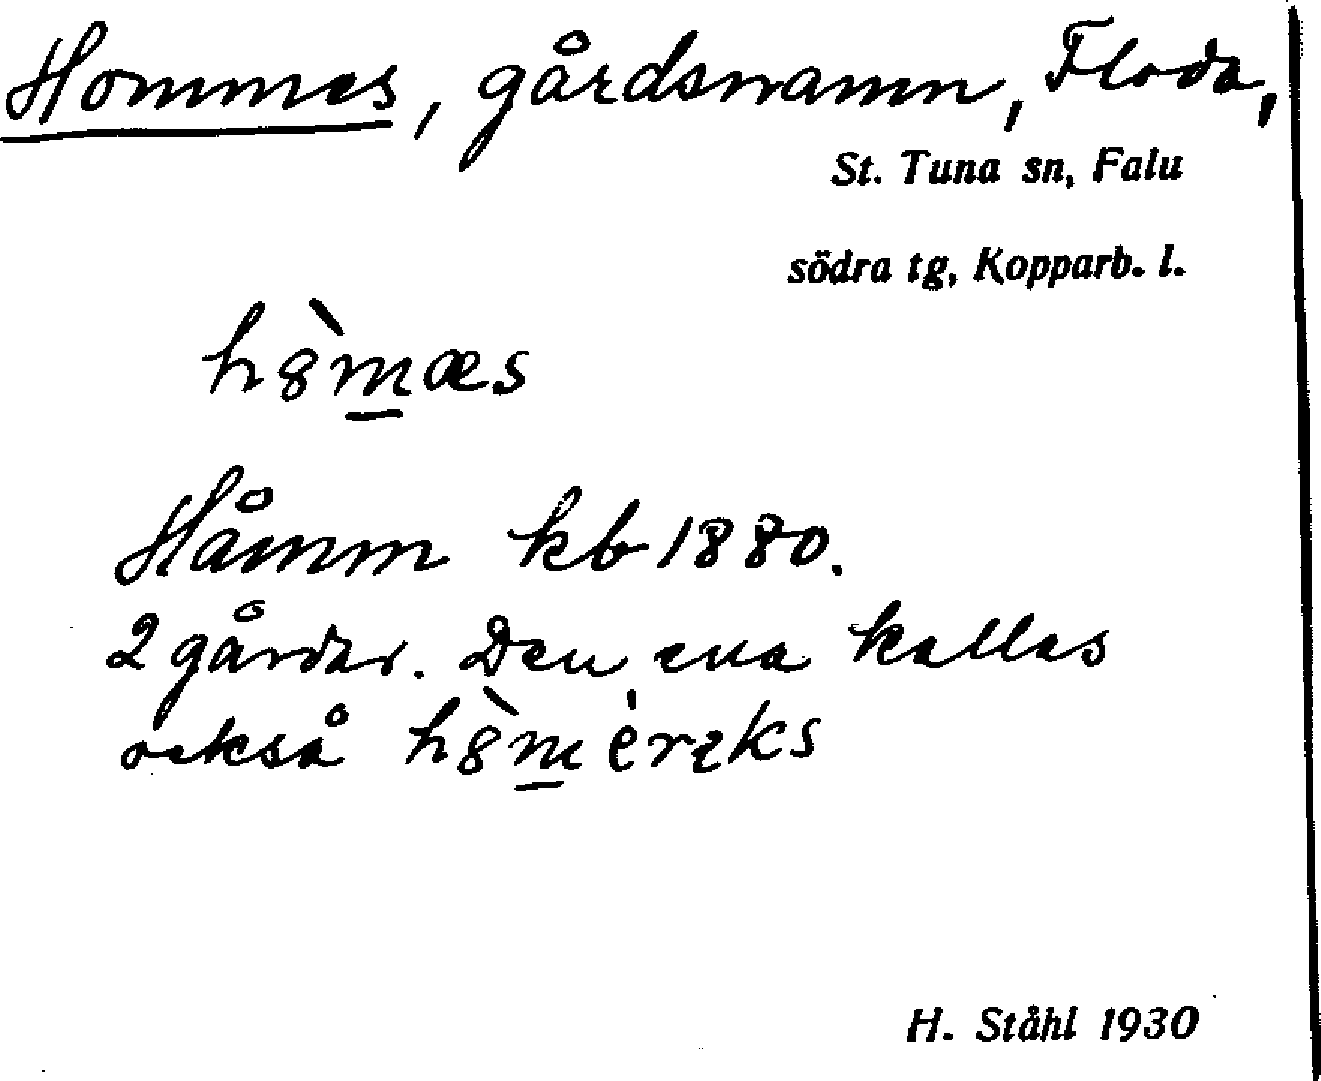 Hommes, gårdsnamn, Floda,
St. Tuna sn, Falu
södra tg, Kopparb. l.
h8̀m̲æs
Håmm kb 1880.
2 gårdar. Den ena kallas
också h8̀m̲èrɩks
H. Ståhl 1930